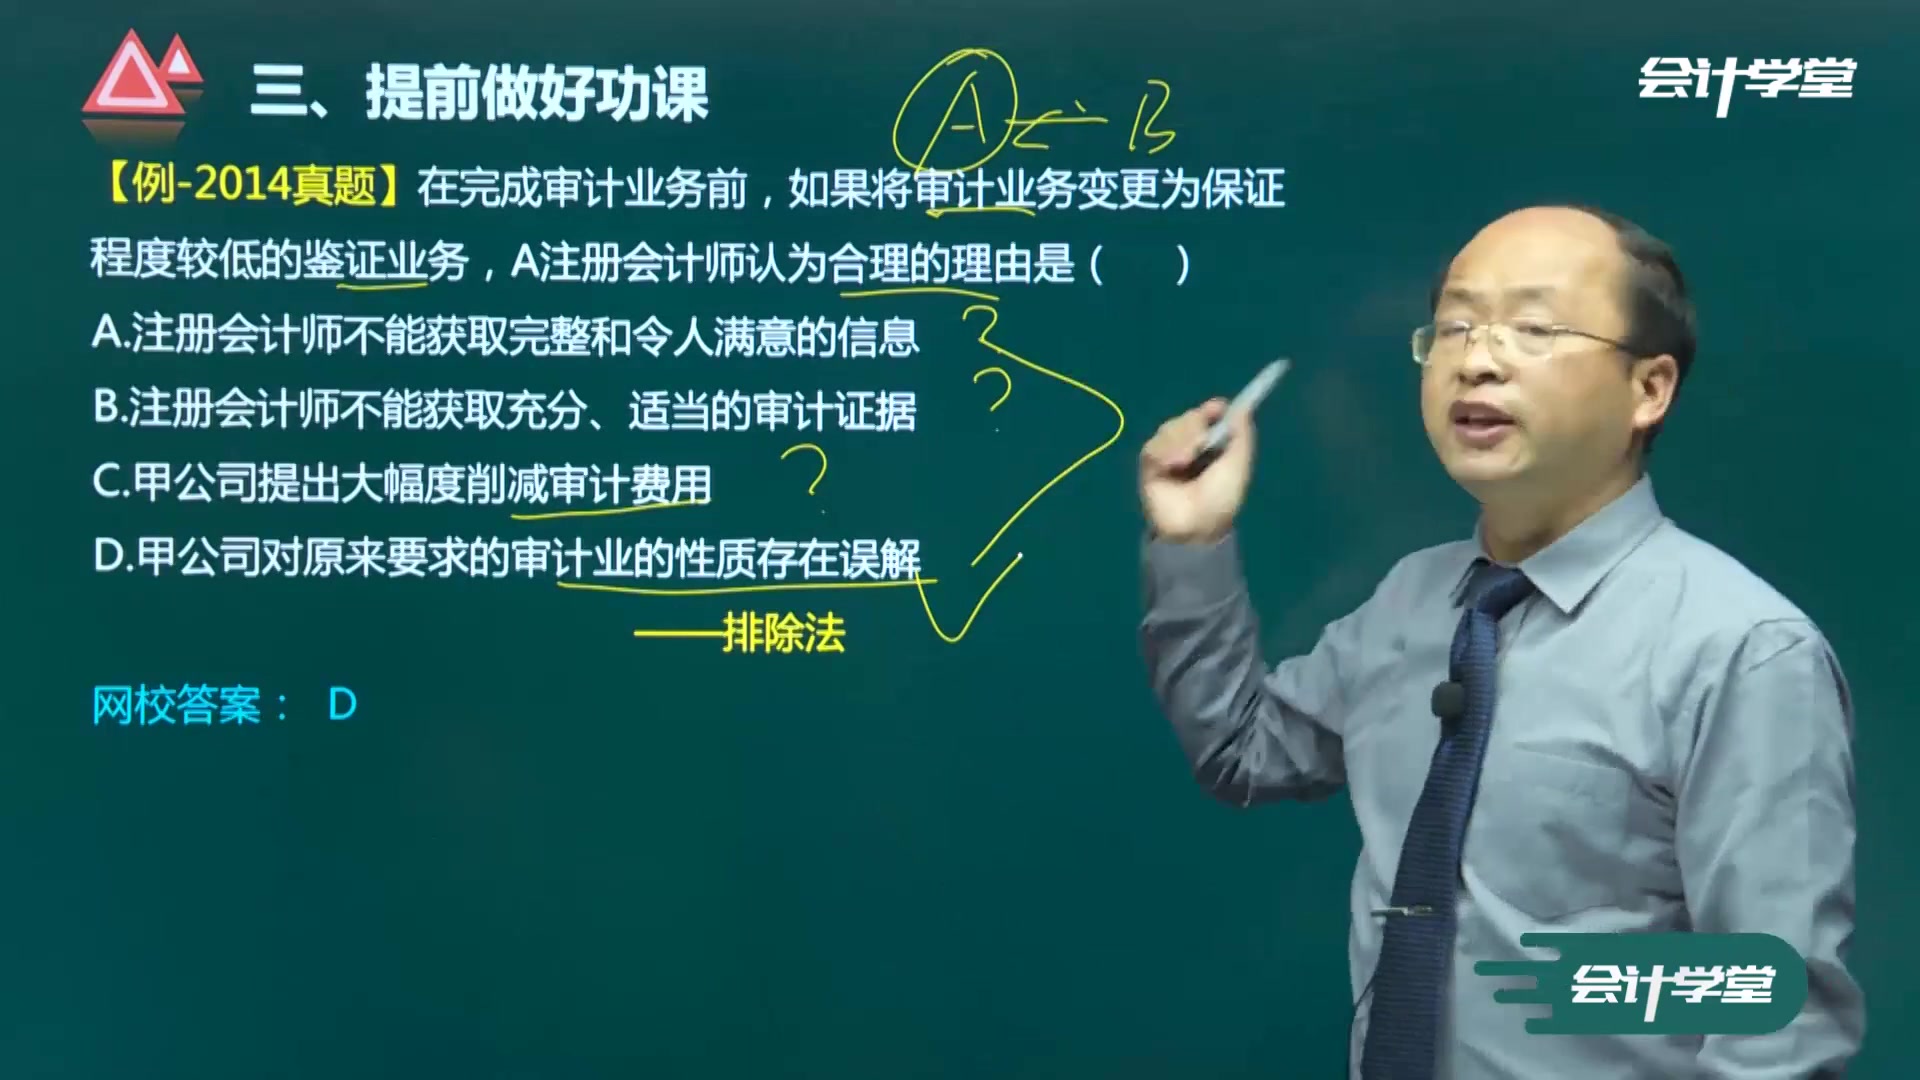 三、提前做好功课
A B
会计学堂
【例-2014真题】在完成审计业务前，如果将审计业务变更为保证
程度较低的鉴证业务，A注册会计师认为合理的理由是（ ）
A.注册会计师不能获取完整和令人满意的信息 ?
B.注册会计师不能获取充分、适当的审计证据 ?
C.甲公司提出大幅度削减审计费用 ?
D.甲公司对原来要求的审计业的性质存在误解
——排除法
网校答案： D
会计学堂